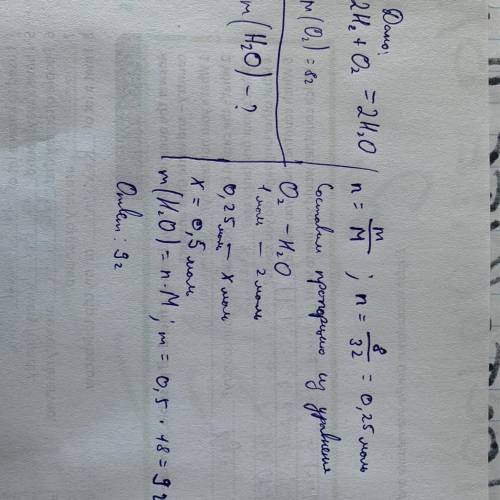 Дано:
2H₂ + O₂ = 2H₂O
m(O₂) = 8г
m(H₂O) - ?
n = m/M ; n = 8/32 = 0,25 моль
Составим пропорцию из уравнения
O₂ - H₂O
1 моль - 2 моль
0,25 моль - x моль
x = 0,5 моль
m(H₂O) = n·M ; m = 0,5 · 18 = 9г
Ответ: 9г